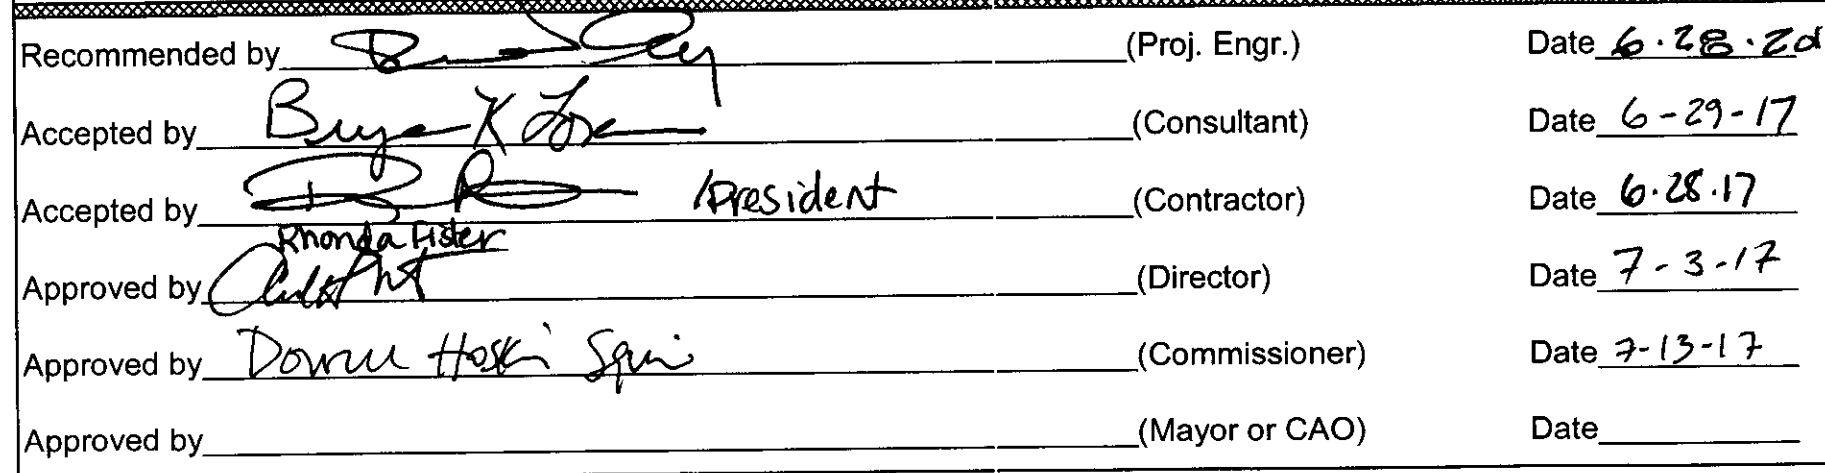 Recommended by (Proj. Engr.) Date 6.28.20
Accepted by Bryan K (Consultant) Date 6-29-17
Accepted by /President (Contractor) Date 6.28.17
Rhonda Fister
Approved by (Director) Date 7-3-17
Approved by (Commissioner) Date 7-13-17
Approved by (Mayor or CAO) Date